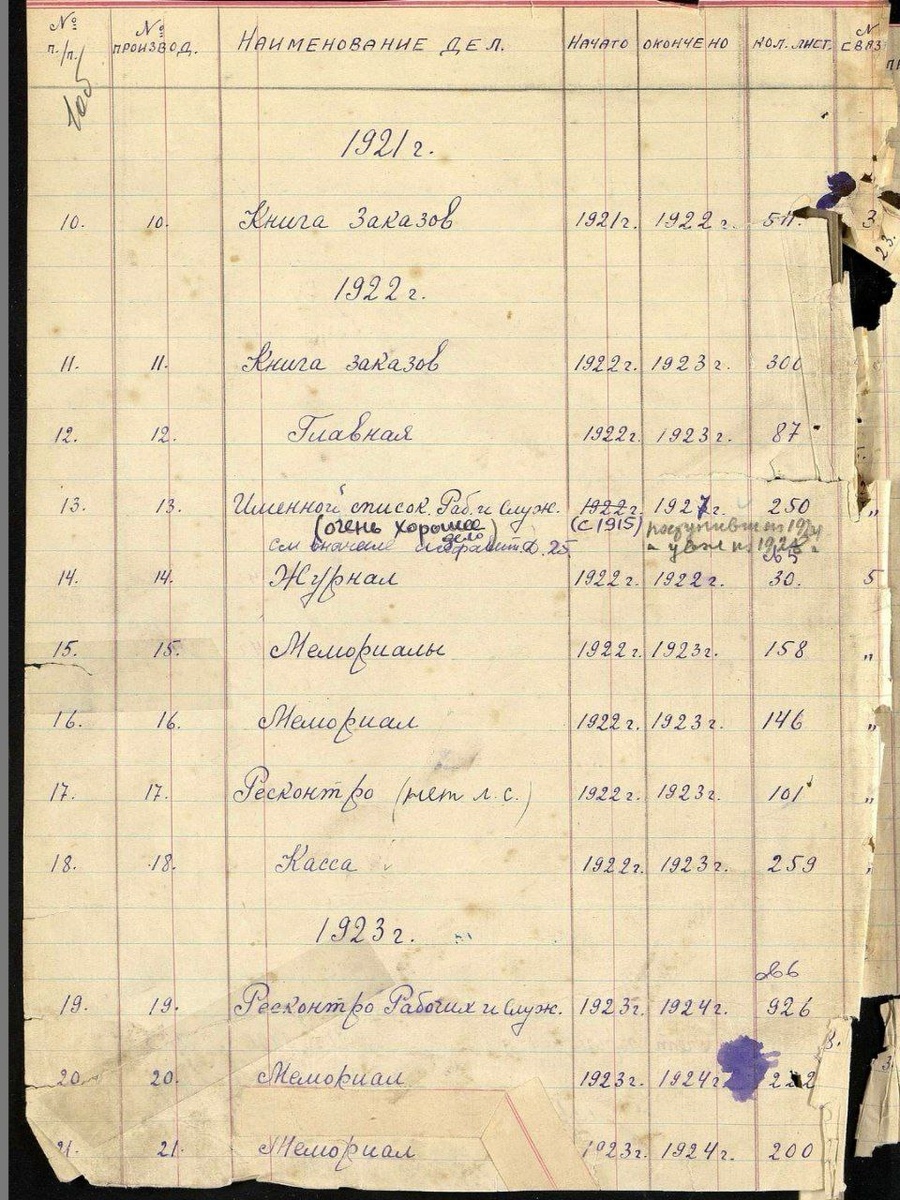 № п./п. № производ. Наименование дел. Начато окончено кол. лист. № связ
100
1921 г.
10. 10. Книга Заказов 1921 г. 1922 г. 511. 3
23.
1922 г.
11. 11. Книга заказов 1922 г. 1923 г. 300 "
12. 12. Главная 1922 г. 1923 г. 87
13. 13. Именной список Раб. и Служ. 1922 г. 1927 г. 250 "
(очень хорошее дело) (с 1915)
см вначале алфавит Д. 25
14. 14. Журнал 1922 г. 1922 г. 30. 5
15. 15. Мемориалы 1922 г. 1923 г. 158 "
16. 16. Мемориал 1922 г. 1923 г. 146 "
17. 17. Ресконтро (нет л.с.) 1922 г. 1923 г. 101 "
18. 18. Касса 1922 г. 1923 г. 259 "
1923 г.
19. 19. Ресконтро Рабочих и Служ. 1923 г. 1924 г. 926
8.
20. 20. Мемориал 1923 г. 1924 г. 222
21. 21. Мемориал 1923 г. 1924 г. 200